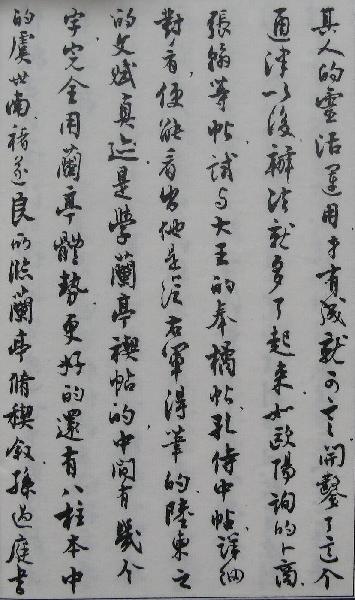 其人的灵活運用才有成就可言開鑿了這个
通津以後辦法就多了起来如歐陽詢的卜商
張翰等帖試与大王的奉橘帖孔侍中帖詳細
對看便能看出他是從右軍得筆的陸柬之
的文賦真迹是學蘭亭禊帖的中間有幾个
字完全用蘭亭體勢更好的還有八柱本中
的虞世南褚遂良所臨蘭亭脩禊叙孫過庭書